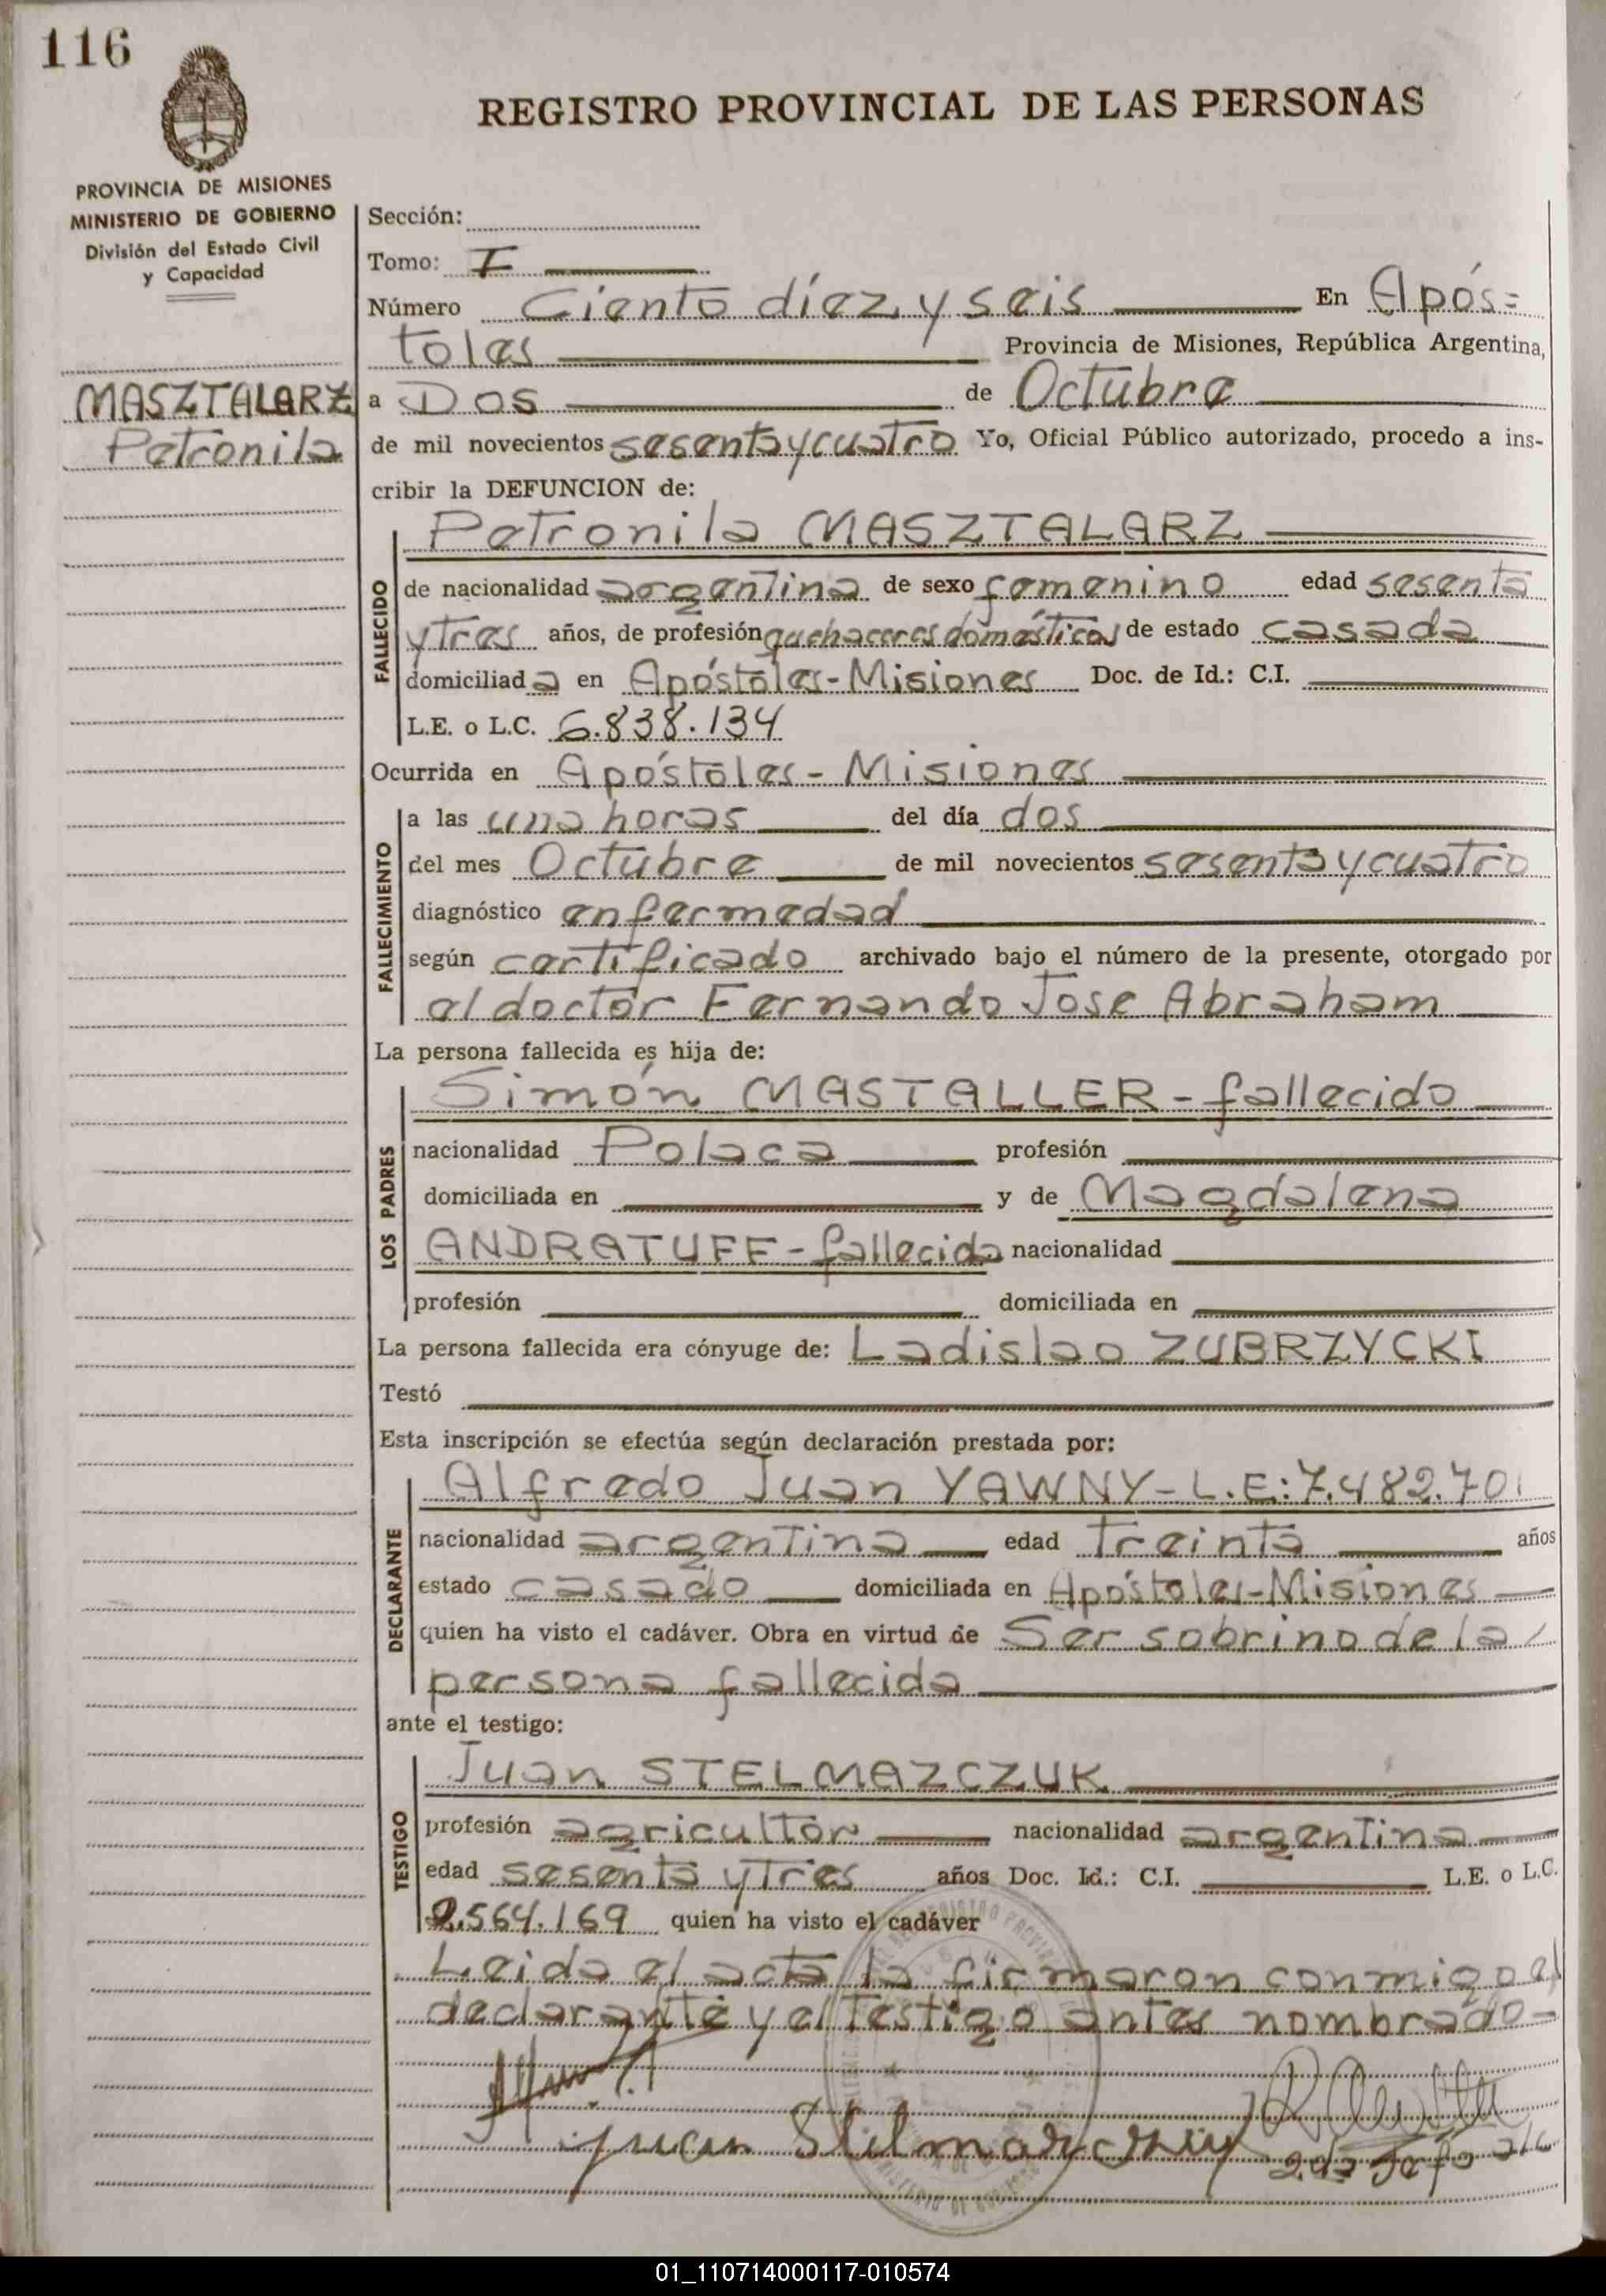 116
REGISTRO PROVINCIAL DE LAS PERSONAS
PROVINCIA DE MISIONES
MINISTERIO DE GOBIERNO
División del Estado Civil
y Capacidad
MASZTALARZ
Petronila
Sección:
Tomo: I
Número Ciento diez y seis En Após=
toles Provincia de Misiones, República Argentina,
a Dos de Octubre
de mil novecientos sesenta y cuatro Yo, Oficial Público autorizado, procedo a ins-
cribir la DEFUNCION de:
FALLECIDO
Petronila MASZTALARZ
de nacionalidad argentina de sexo femenino edad sesenta
y tres años, de profesión quehaceres domésticos de estado casada
domiciliad a en Apóstoles-Misiones Doc. de Id.: C.I.
L.E. o L.C. 6.838.134
Ocurrida en Apóstoles-Misiones
FALLECIMIENTO
a las una horas del día dos
del mes Octubre de mil novecientos sesenta y cuatro
diagnóstico enfermedad
según certificado archivado bajo el número de la presente, otorgado por
el doctor Fernando Jose Abraham
La persona fallecida es hija de:
LOS PADRES
Simón MASTALLER-fallecido
nacionalidad Polaca profesión
domiciliada en y de Magdalena
ANDRATUFF-fallecida nacionalidad
profesión domiciliada en
La persona fallecida era cónyuge de: Ladislao ZUBRZYCKI
Testó
Esta inscripción se efectúa según declaración prestada por:
DECLARANTE
Alfredo Juan YAWNY-L.E:7.482.701
nacionalidad argentina edad treinta años
estado casado domiciliada en Apóstoles-Misiones
quien ha visto el cadáver. Obra en virtud de Ser sobrino de la
persona fallecida
ante el testigo:
TESTIGO
Juan STELMAZCZUK
profesión agricultor nacionalidad argentina
edad sesenta y tres años Doc. Id.: C.I. L.E. o L.C.
2.564.169 quien ha visto el cadáver
Leida el acta la firmaron conmigo el
declarante y el testigo antes nombrado-
Juan
01_110714000117-010574